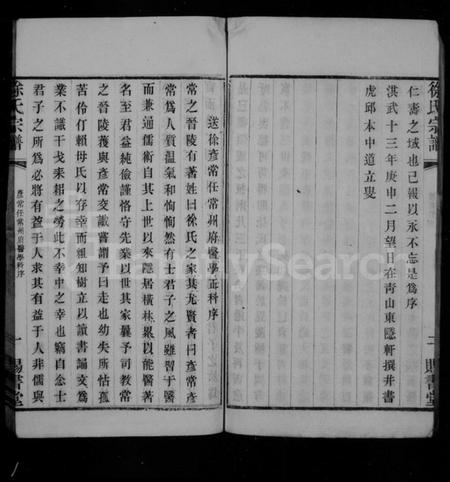 徐氏宗譜
仁壽之域也已報以永不忘是爲序
洪武十三年庚申二月望日在靑山東隱軒撰并書
虎邱本中道立叟
二 賜書堂
送徐彥常任常州府醫學正科序
常之晉陵有著姓曰徐氏之家其尤賢者曰彥常彥
常爲人質溫氣和恂恂然有士君子之風雖習于醫
而兼通儒術自其上世以來隱居橫林累以能醫著
名至君益純儉謹恪守先業以世其家曩予司教常
之晉陵獲與彥常交歡嘗謂予曰走也幼失所怙孤
苦伶仃賴母氏以存幸而粗知樹立以讀書誦文爲
業不識干戈耒耜之勞此不幸中之幸也竊自念士
君子之所爲必將有益于人求其有益于人非儒與
徐氏宗譜
彥常任常州府醫學科序
一 賜書堂
MySearch